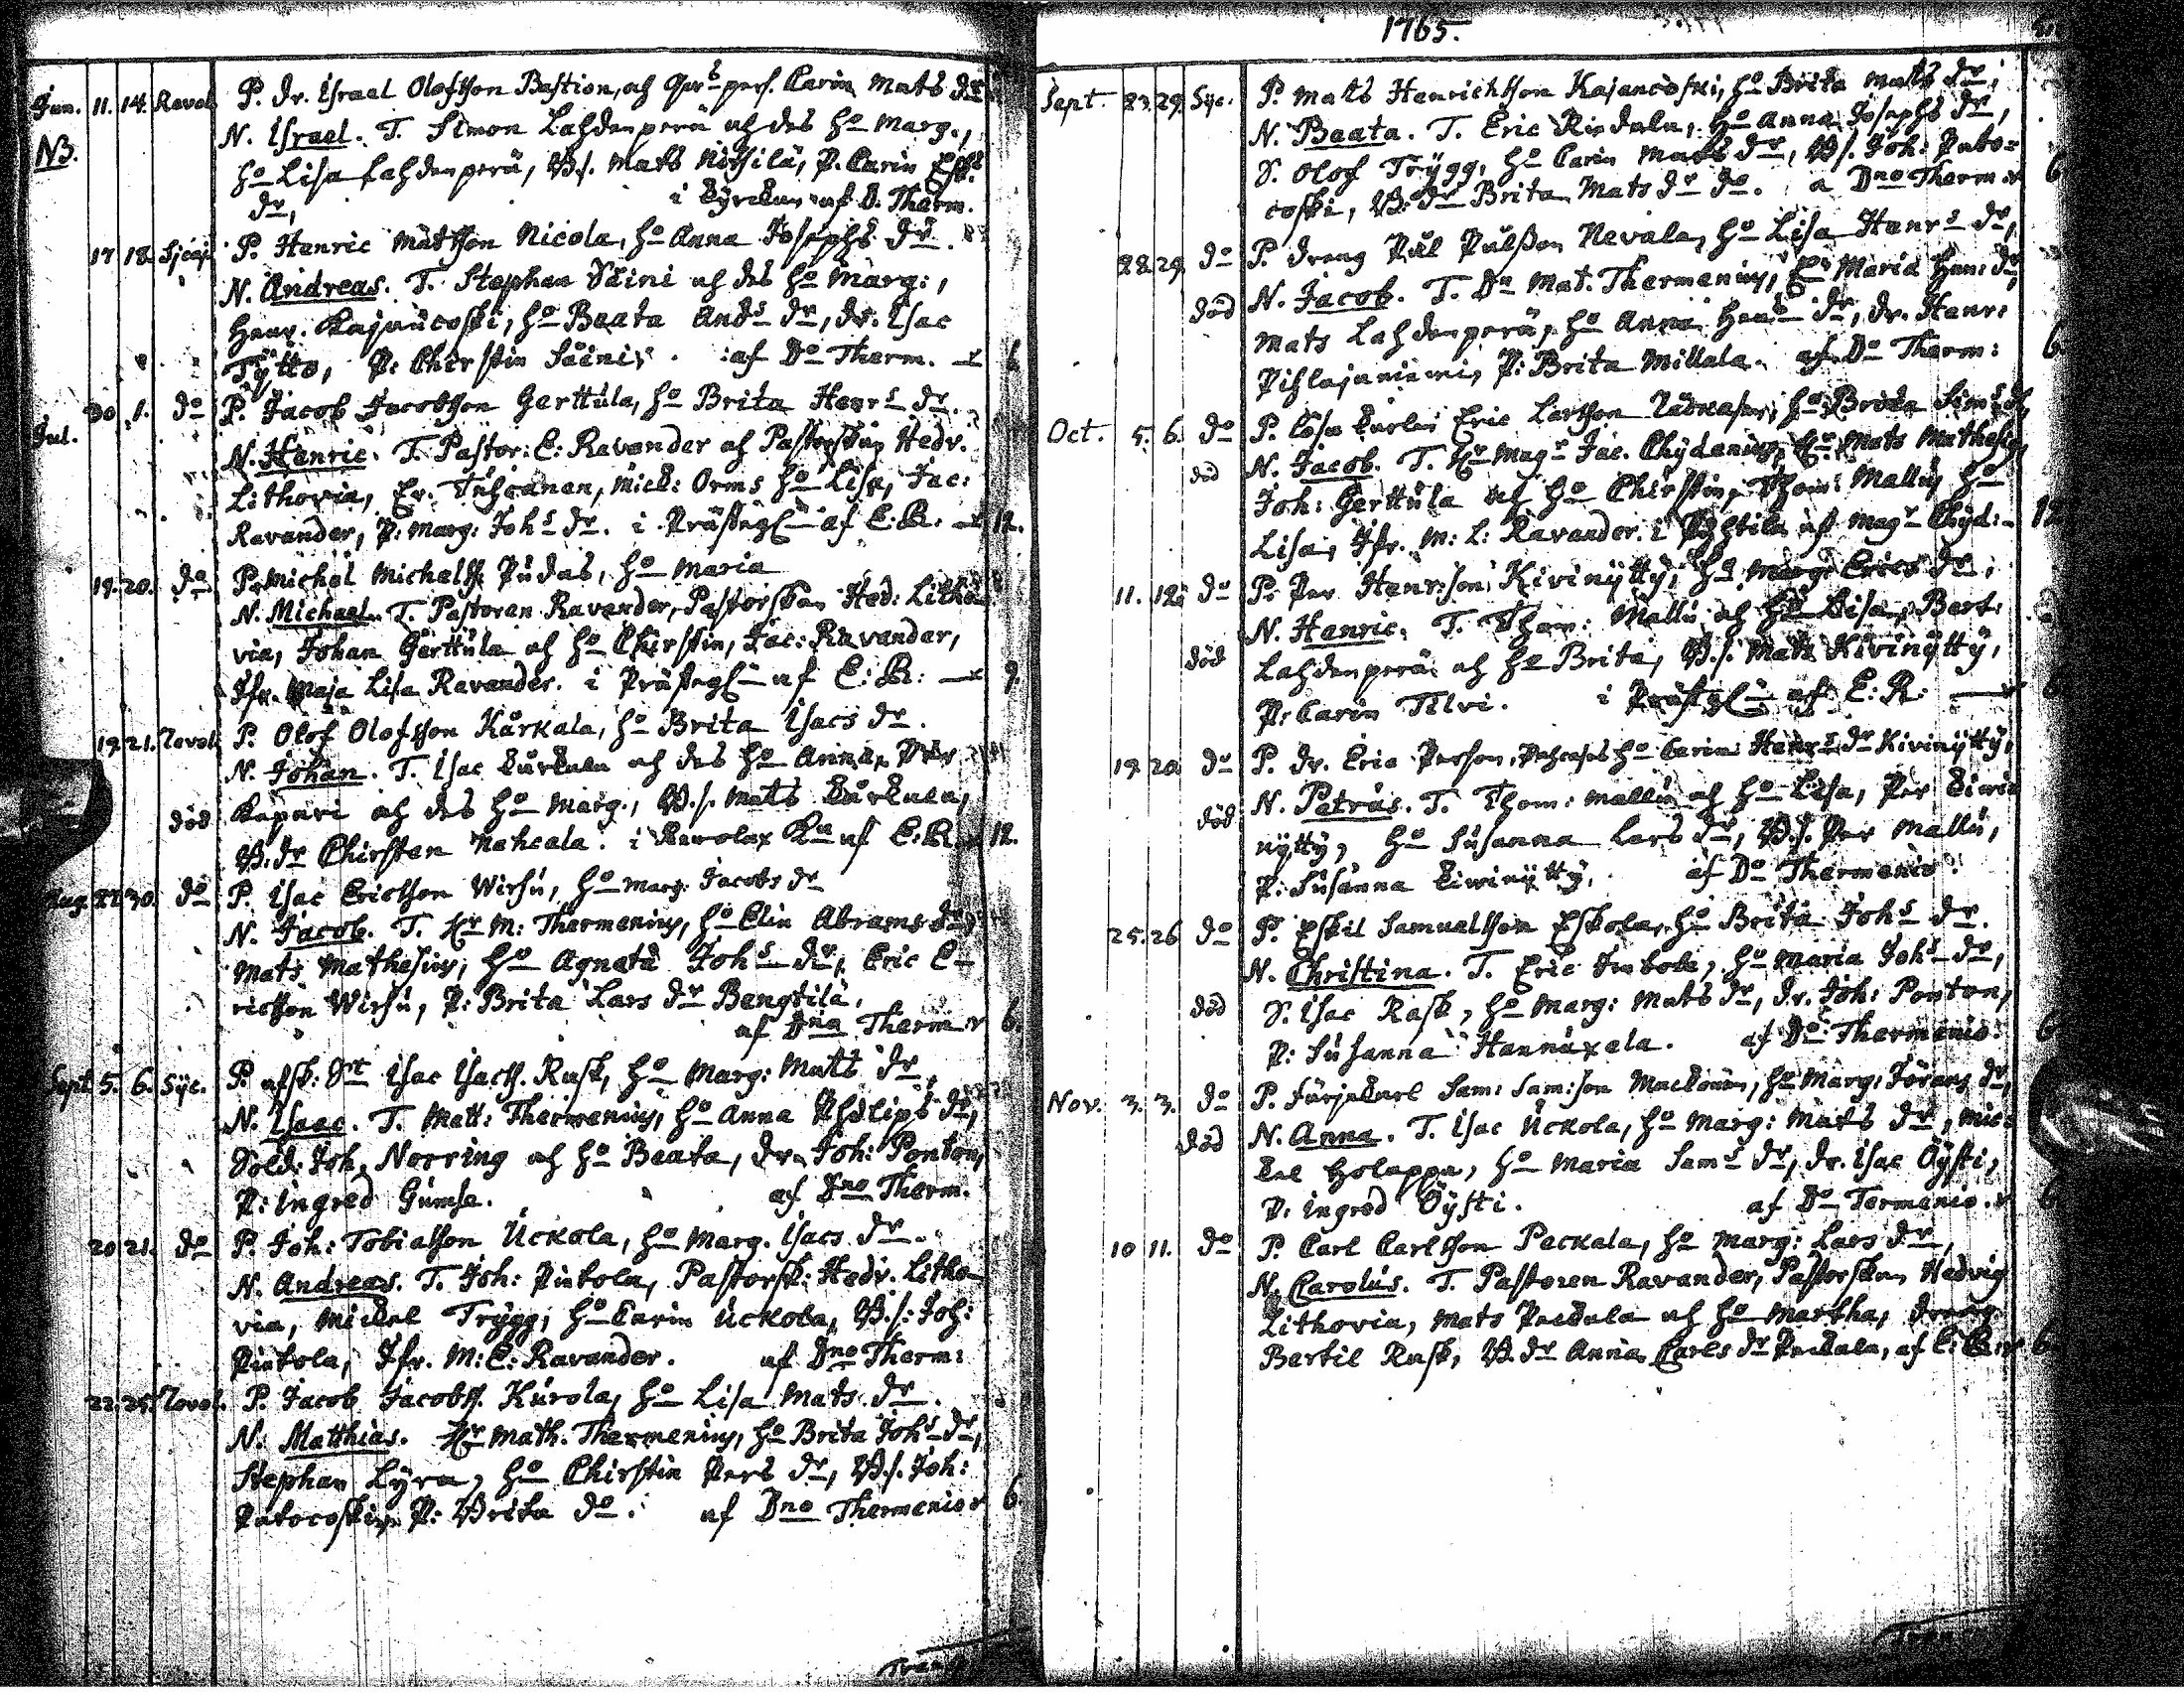 Jun. 11. 14. Raval. P. dr. Israel Olofsson Bastion, och Qvs pers. Carin Mats dr
NB. N. Israel. T. Simon Lahdenperä och des ho Marg.,
ho Lisa Lahdenperä, B.s. Mats Nithilä, P. Carin Esk.
dr, i Kyrckan af D. Therm.
17 18. P. Henric Matsson Nicola, ho Anna Josephs dr.
N. Andreas. T. Stephan Säini och des ho Marg:,
Henr. Kajancoski, ho Beata Ands dr, dr. Isac
Tÿtto, P: Chirstin Säini. af Do Therm. 6
Jul. 30 1. do P. Jacob Jacobsson Gerttula, ho Brita Henrs dr.
N. Henric. T. Pastor: E: Ravander och Pastorskan Hedv.
Lithovia, Er. Juscanen, Mick: Orms ho Lisa, Jac:
Ravander, P: Marg: Johs dr. i Prästegln af E: R: 12.
19. 20. do P. Michel Michelss. Pudas, ho Maria
N. Michael. T. Pastoren Ravander, Pastorskan Hed: Litho
via, Johan Gerttula och ho Chirstin, Jac: Ravander,
Jfr. Maja Lisa Ravander. i Prästegln af E: R: 9.
19. 21. P. Olof Olofsson Kårkala, ho Brita Isacs dr.
N. Johan. T. Isac Kårkala och des ho Anna, Per
död Kapari och des ho Marg., B.s. Mats Kårkala,
B. dr Chirsten Nahcala. i af E: R. 12.
Aug. 27 30. do P. Isac Ericsson Wirsu, ho Marg: Jacobs dr
N. Jacob. T. Hr M: Thermenius, ho Elin Abrams dr,
Mats Mathesius, ho Agneta Johs dr, Eric E-
ricsson Wirsu, P: Brita Lars dr Bengtilä.
af Dno Therm 6.
Sept 5. 6. Syc. P. afsk: Sdt Isac Isacss. Rask, ho Marg: Mats dr,
N. Isaac. T. Matt: Thermenius, ho Anna Philips dr,
Sold: Joh. Norring och ho Beata, dr. Joh: Ponton,
P: Ingred Gumse. af Dno Therm.
20 21. do P. Joh: Tobiasson Uckola, ho Marg. Isacs dr.
N. Andreas. T. Joh: Pintola, Pastorsk: Hedv. Litho-
via, Mickel Trygg, ho Carin Uckola, B.s: Joh:
Pintola, Jfr. M: E: Ravander. af Dno Therm:
22. 25. P. Jacob Jacobss. Kurola, ho Lisa Mats dr.
N. Matthias. Hr Math. Thermenius, ho Brita Johs dr,
Stephan Lyra, ho Chirstin Pers dr, B.s. Joh:
Patocoski, P: Brita do. af Dno Thermenio 6.
1765.
Sept. 23. 29. Syc. P. Mats Henrichsson Kajancoski, ho Brita Mats dr,
N. Beata. T. Eric Riekala, ho Anna Josephs dr,
S. Olof Trÿgg, ho Carin Mats dr, B.s. Joh: Pato-
coski, B: dr Brita Mats dr do. a Dno Therm 6
28. 29. do P. dreng Pål Pålsson Nevala, ho Lisa Henrs dr,
död N. Jacob. T. Dn Mat. Thermenius, Maria Hen: dr,
Mats Lahdenperä, ho Anna Hens dr, dr. Henr:
Pihlajaniemi, P: Brita Millala. af Do Therm: 6
Oct. 5. 6. do P. Eric Larsson ho Brita Sims dr,
död N. Jacob. T. Hr Magr Jac. Chydenius, Hr Mats Mathesius,
Joh: Gerttula och ho Chirstin, Thom: Mallu, ho
Lisa, Jfr. M: L: Ravander. i af Magr Chyd: 12
11. 12. do P. Per Henr:son Kivinÿttÿ, ho Marg: Erics dr,
N. Henric. T. Thom: Mallu och ho Lisa, Bert:
död Lahdenperä och ho Brita, B.s. Mats Kivinÿttÿ,
P: Carin Tilvi. i Prästegln af E: R: 6
19. 20. do P. dr. Eric Persson, ho Carin Henrs dr Kivinÿttÿ,
död N. Petrus. T. Thom: Mallu och ho Lisa, Per Kivi-
nÿttÿ, ho Susanna Lars dr, B.s. Per Mallu,
P: Susanna Kivinÿttÿ. af Do Thermenio.
25. 26 do P. Eskil Samuelsson Eskola, ho Brita Johs dr.
N. Christina. T. Eric Intola, ho Maria Johs dr,
död S. Isac Rask, ho Marg: Mats dr, dr. Joh: Ponton,
P: Susanna Hannuxela. af Do Thermenio. 6
Nov. 3. 3. do P. Färjekarl Sam: Sam:son Mackonen, ho Marg: Görans dr,
död N. Anna. T. Isac Uckola, ho Marg: Mats dr, Mic-
kel Holappa, ho Maria Sams dr, dr. Isac Öÿsti,
P: Ingred Öÿsti. af Do Termenio. 6
10 11. do P. Carl Carlsson Packala, ho Marg: Lars dr,
N. Carolus. T. Pastoren Ravander, Pastorskan Hedvig
Lithovia, Mats Packala och ho Martha, dreng
Bertil Rask, B. dr Anna Carls dr Packala, af E: R: 6